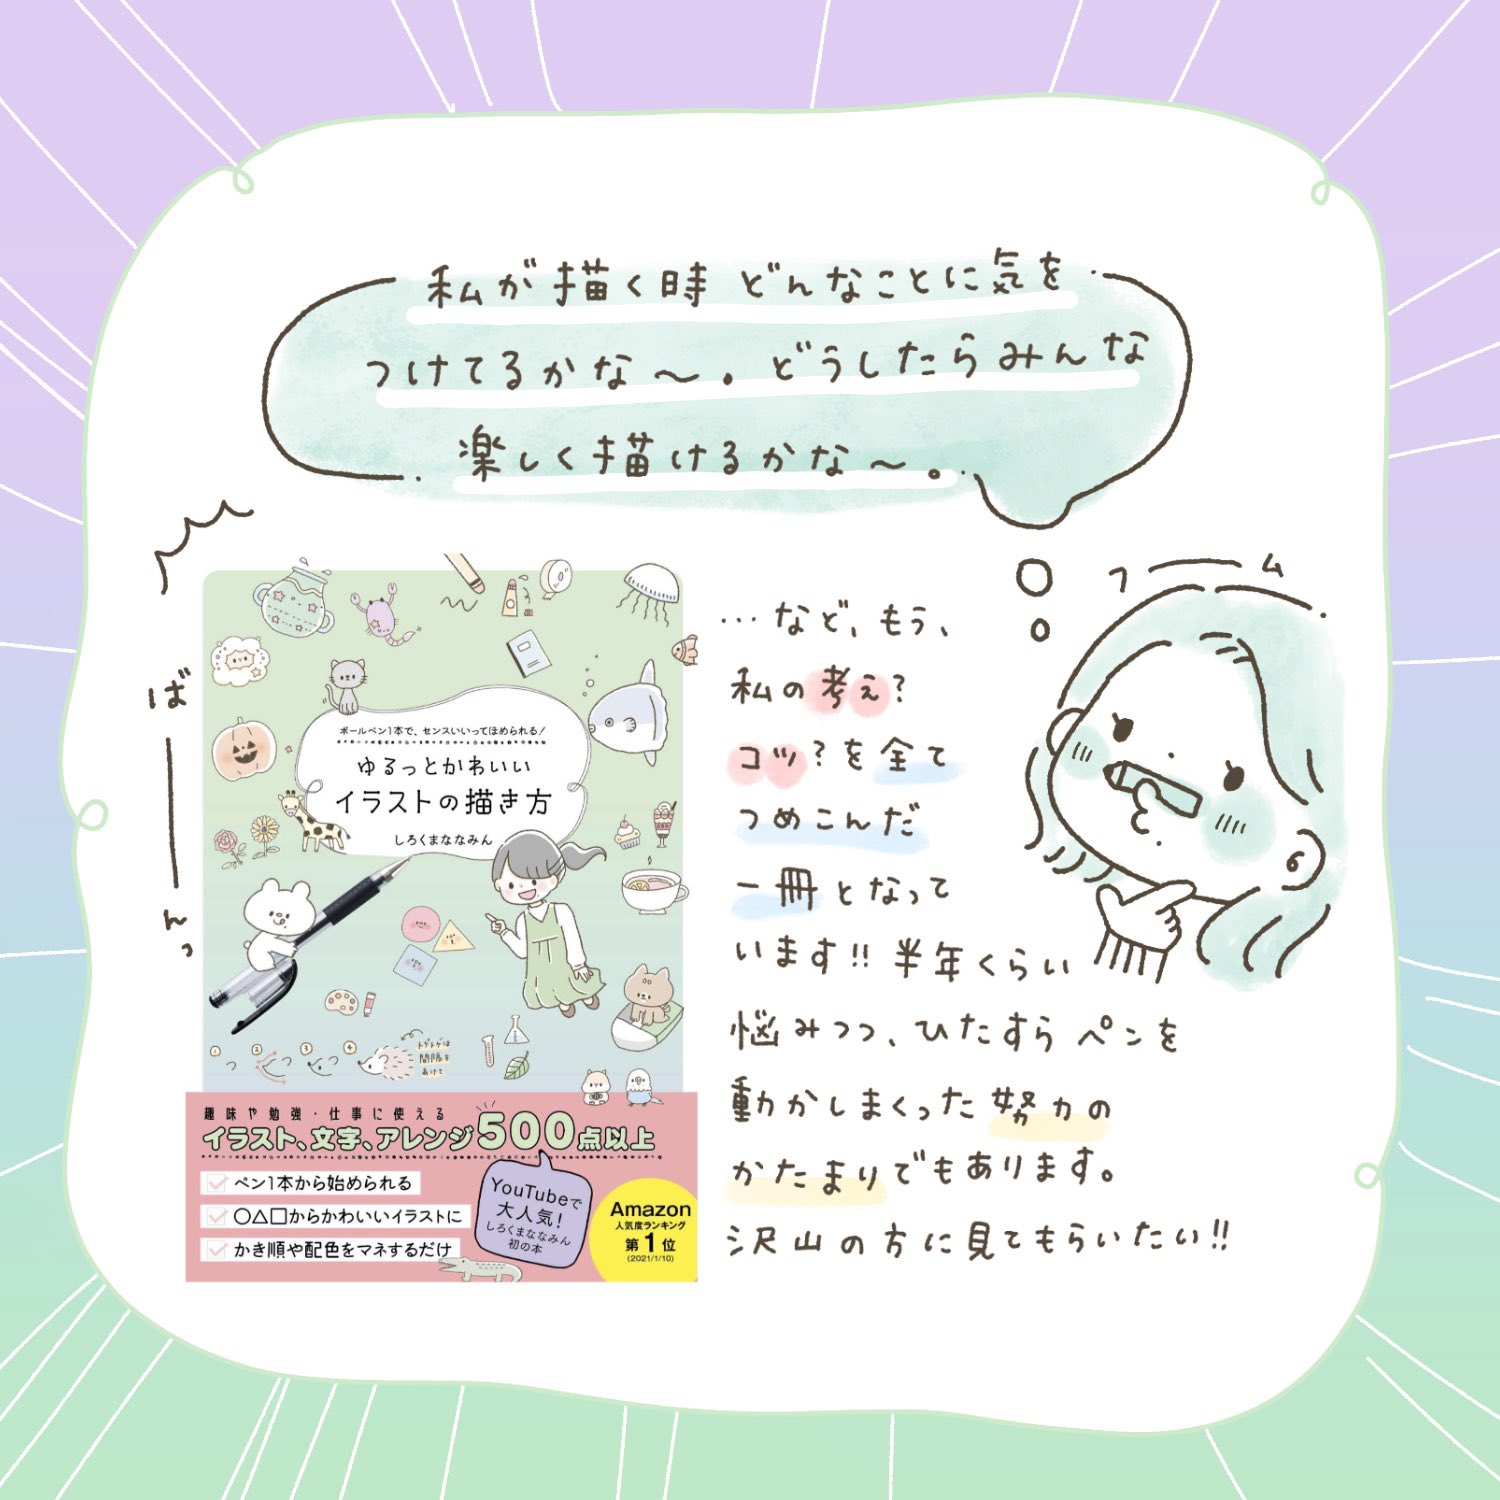 私が描く時 どんなことに気を
つけてるかな〜。どうしたらみんな
楽しく描けるかな〜。
フーム
ばーんっ
ボールペン1本で、センスいいってほめられる!
ゆるっとかわいい
イラストの描き方
しろくまななみん
1 2 3 4
トゲトゲは
間隔を
あけて
趣味や勉強・仕事に使える
イラスト、文字、アレンジ500点以上
ペン1本から始められる
○△□からかわいいイラストに
かき順や配色をマネするだけ
YouTubeで
大人気!
しろくまななみん
初の本
Amazon
人気度ランキング
第1位
(2021/1/10)
…など、もう、
私の考え?
コツ?を全て
つめこんだ
一冊となって
います!!半年くらい
悩みつつ、ひたすらペンを
動かしまくった努力の
かたまりでもあります。
沢山の方に見てもらいたい!!